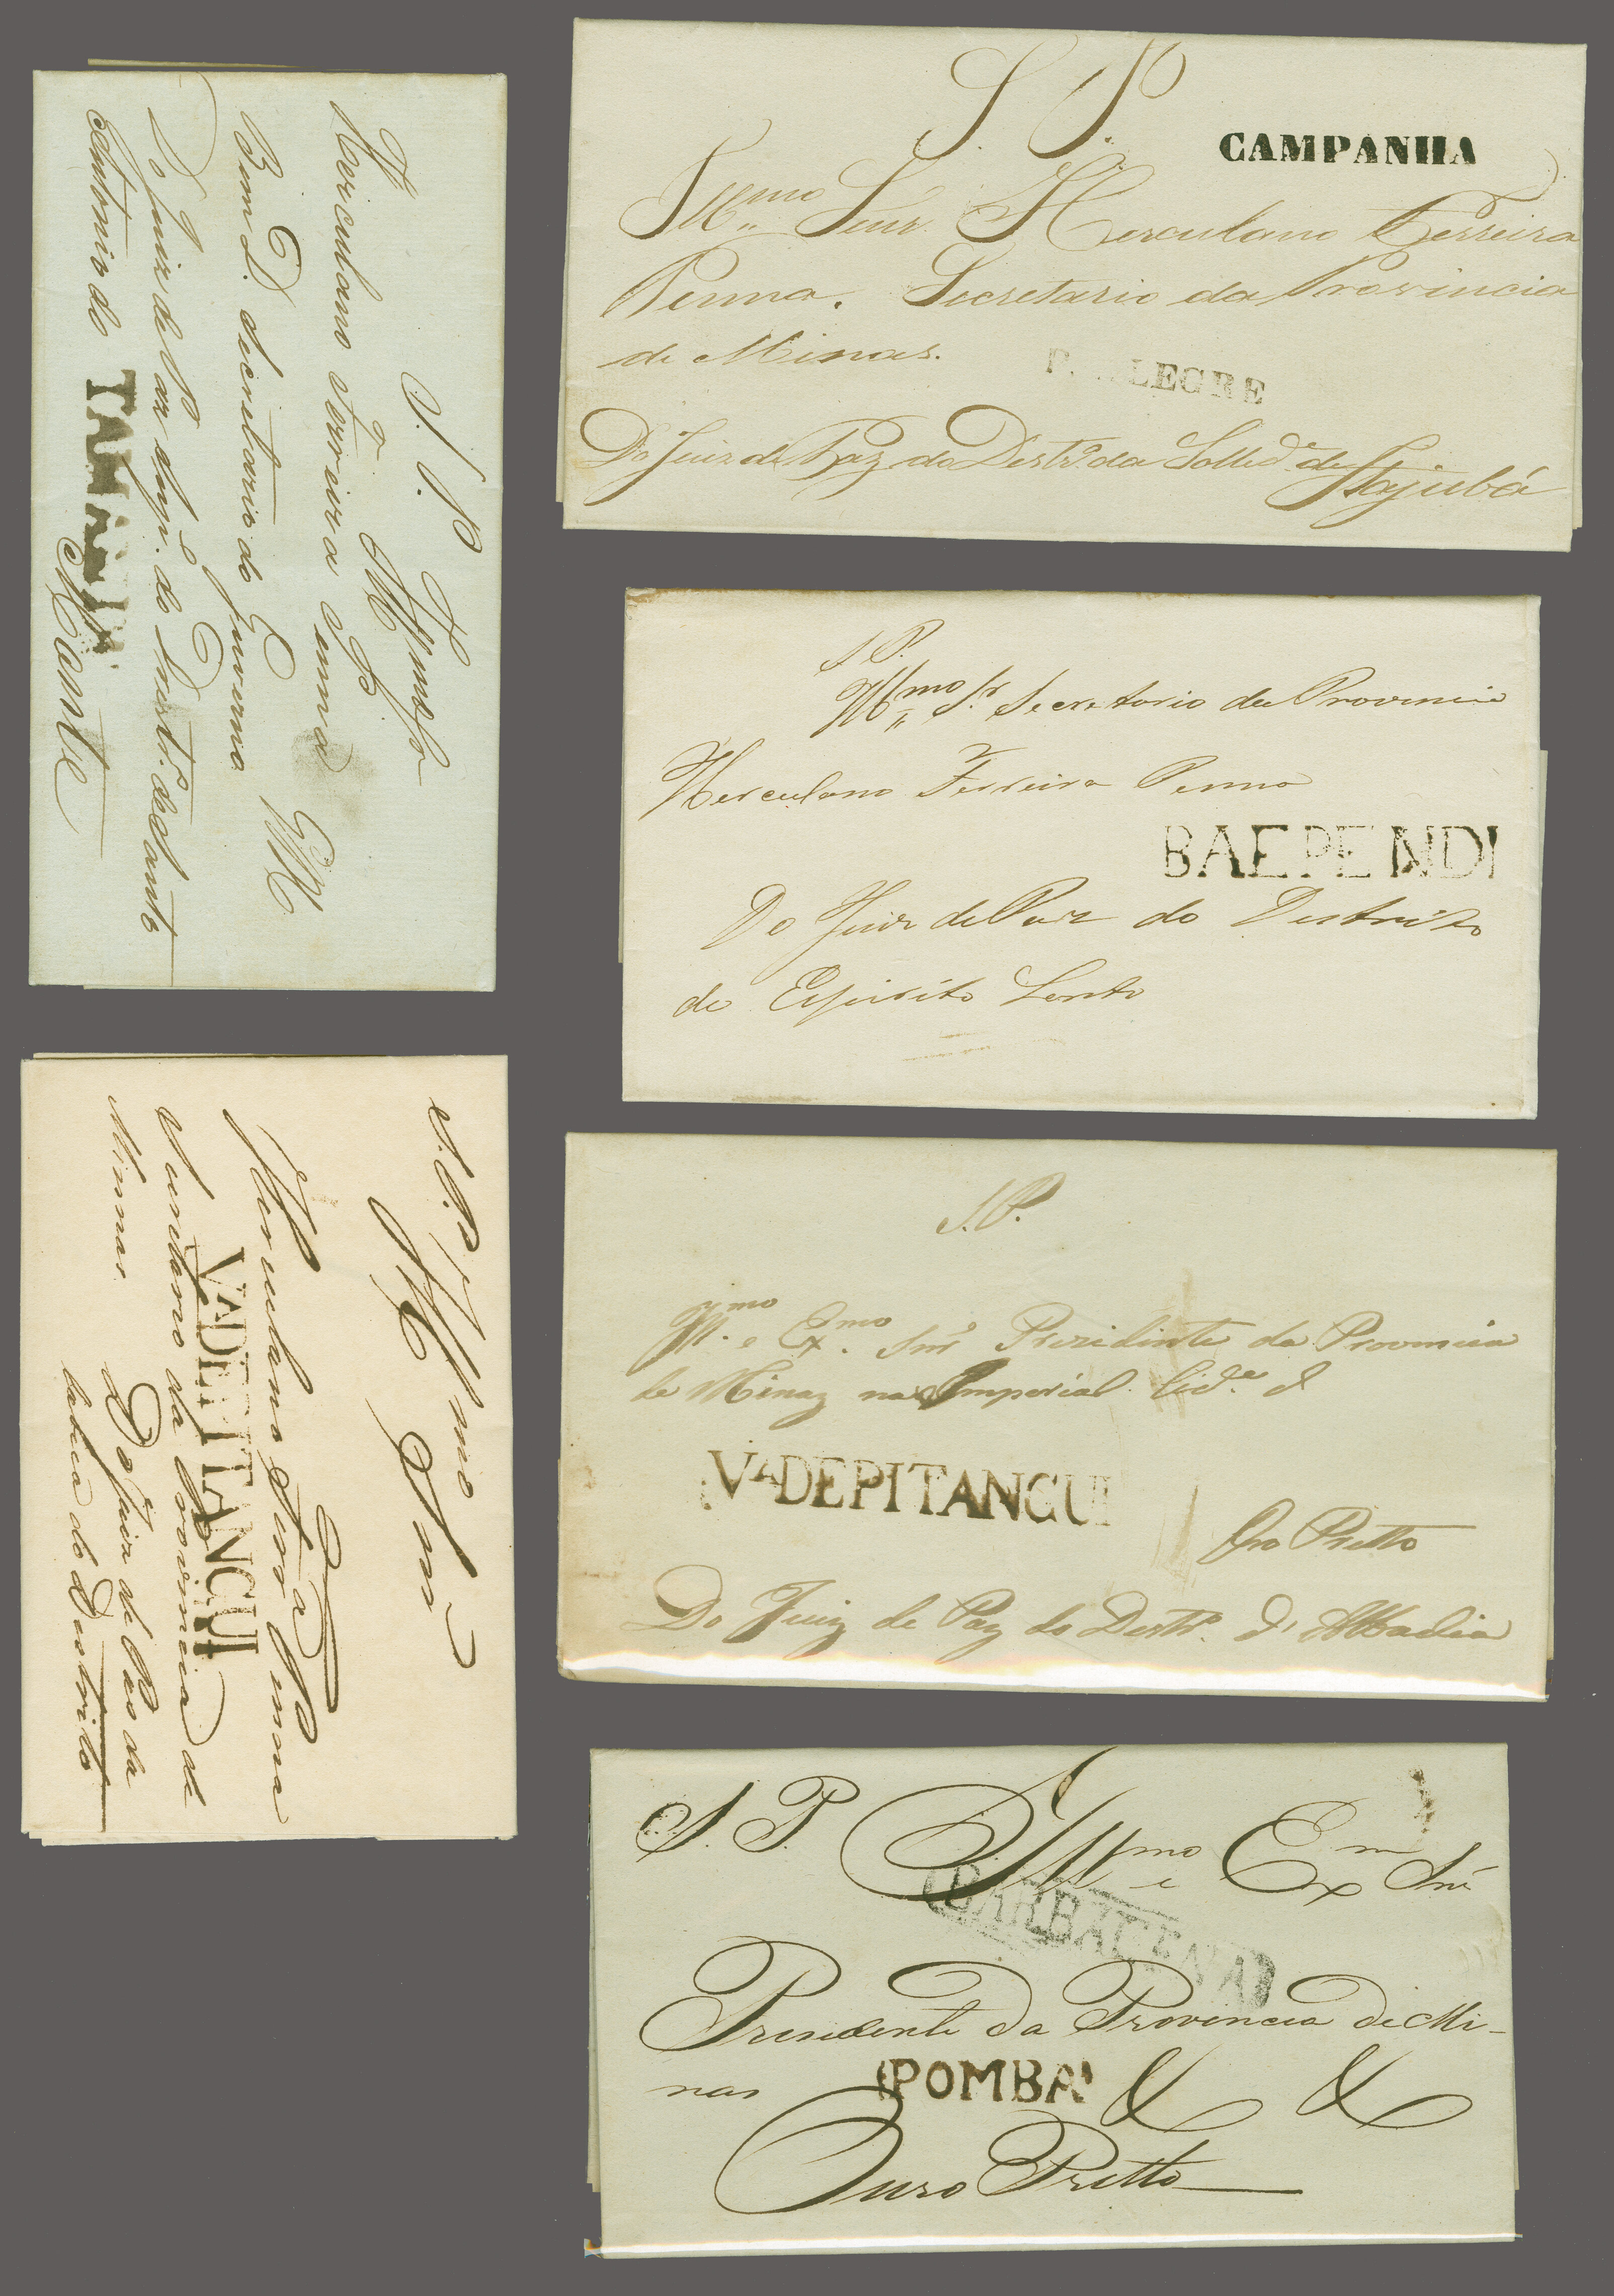 S. P.
CAMPANHA
Illmo Snr. Herculano Ferreira
Penna. Secretario da Provincia
de Minas.
P. LEGRE
Do Juiz de Paz do Destro da Solledе. de Itajubá
S. P.
Illmo Sr
Herculano Ferreira Penna
Secretario do Governo
Do Juiz de Paz do Destr.
Antonio do Monte
S P.
Illmo Sr. Secretario da Provincia
Herculano Ferreira Penna
BAEPENDI
Do Juiz de Paz do Destrito
de Espirito Santo
S. P.
Illmo Snr
Herculano Ferra Penna
Secretario da Provincia de
Minnas
VA DE PITANGUI
Do Juiz de Pas da
do Destrito
S. P.
Illmo. e Exmo. Snr Prezidente da Provincia
de Minaz na Imperial Cide. d
VA DE PITANGUI
Oro Pretto
Do Juiz de Paz do Destro. d' Abbadia
S. P. Illmo e Exm Snr
BARBACENA
Presidente da Provincia de Mi-
nas
POMBA
& &
Ouro Pretto